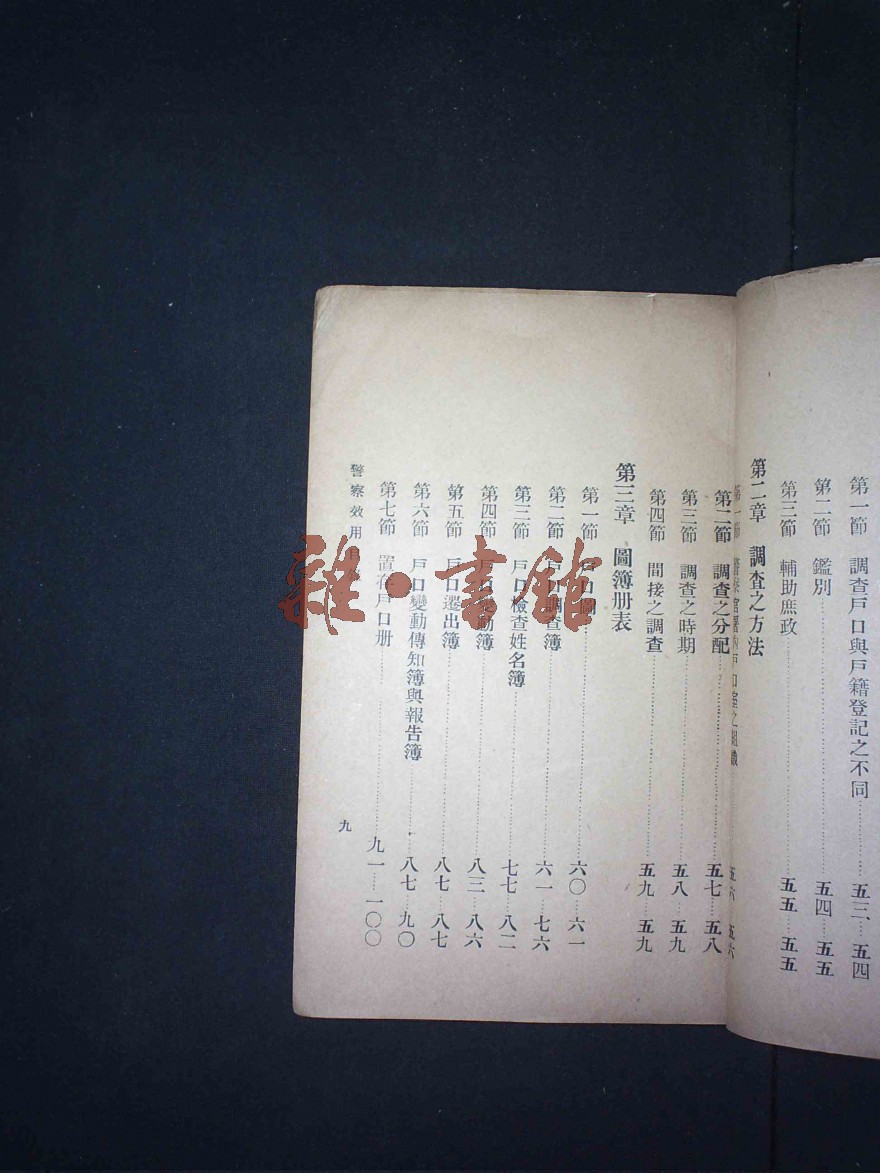 第一節 調查戶口與戶籍登記之不同……五三……五四
第二節 鑑別……五四……五五
第三節 輔助庶政……五五……五五
第二章 調查之方法
第一節 警察官署內戶口室之組織……五六……五六
第二節 調查之分配……五七……五八
第三節 調查之時期……五八……五九
第四節 間接之調查……五九……五九
第三章 圖簿册表
第一節 戶口圖……六〇……六一
第二節 戶口調查簿……六一……七六
第三節 戶口檢查姓名簿……七七……八二
第四節 戶口變動簿……八三……八六
第五節 戶口遷出簿……八七……八七
第六節 戶口變動傳知簿與報告簿……八七……九〇
第七節 置在戶口册……九一……一〇〇
警察效用目
九
雜·書館